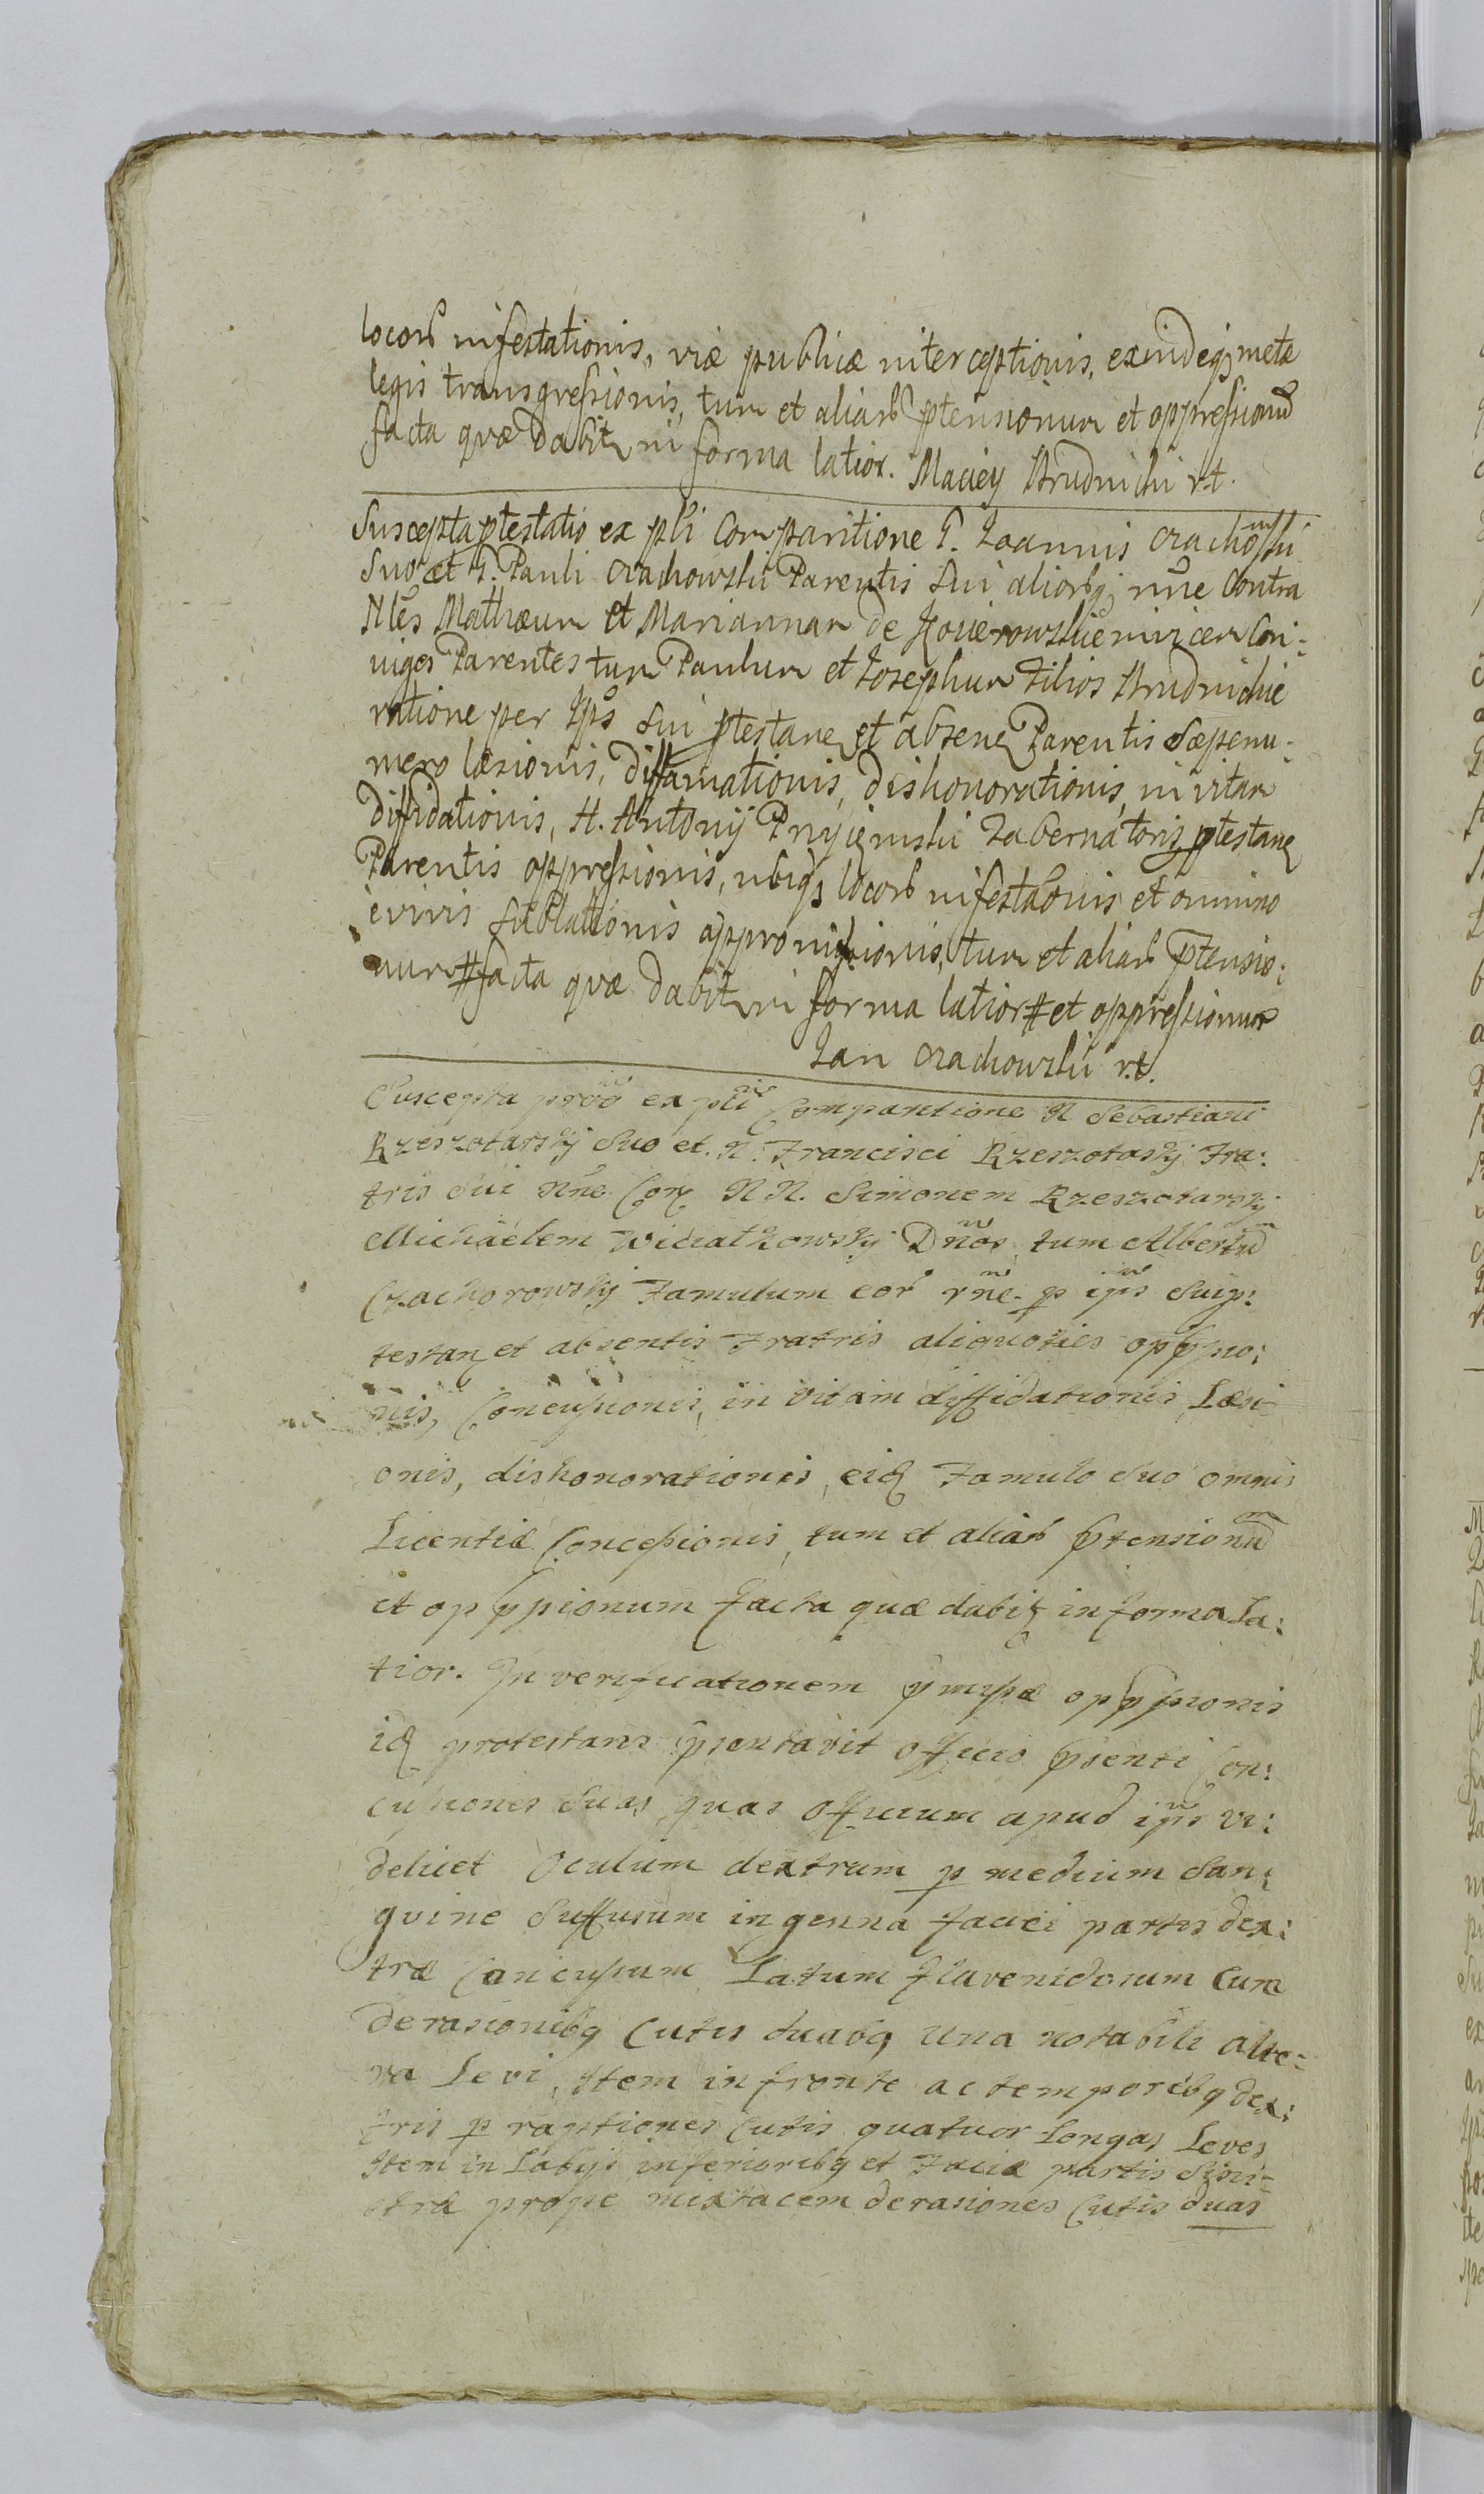 locorũ infestationis, viæ publicæ interceptionis, exindeq; metæ
legis transgressionis, tum et aliarũ ptensionum et oppressionũ
facta quæ dabit in forma latior. Maciey Brudnicki r.t.
Suscepta ptestatio ex psli Comparitione G. Joannis Czachowski
Suo et G. Pauli Czachowski Parentis Sui aliorũq; nñe Contra
Nles Mathæum et Mariannam de invicem Con:
iuges Parentes tum Paulum et Josephum Filios Brudnickie
ratione per Ips Sui ptestane et absene Parentis sæpenu:
mero læsionis, diffamationis, dishonorationis, in vitam
diffidationis, H. Antonij Tabernatoris ptestane
Parentis oppressionis, ubiq; locorũ infestãonis et omnino
è vivis sublationis appromissionis, tum et aliarũ ptensio:
num # facta quæ dabit in forma latior # et oppressionum
Jan Czachowski r.t.
Suscepta prõo ex psli Comparitione N Sebastiani
Rzeszotarskj Suo et N. Francisci Rzeszotaskj Fra:
tris Sui nñe Con NN. Simonem Rzeszotarskj
Michaelem Wichatkowskj Dños tum Albertũ
Czachorowskj Famulum eorũ rñe. p ips Suip:
testan et absentis Fratris aliquoties oppssio:
nis, Concussionis, in vitam diffidationis, Læsi-
onis, dishonorationis, eid Famulo Suo omnis
Licentiæ Concessionis, tum et aliarũ ptensionũ
et oppssionum facta quæ dabit in forma La:
tior. In verificationem pmissæ oppssionis
id protestans psentavit officio psenti Con:
cussiones Suas, quas officium apud ips vi:
delicet Oculum dextrum p medium San:
guine Suffusum in genna faciei partis dex:
træ Concussum Latum flavenidosum cum
derasionibq Cutis duabq una notabili alte-
ra Levi, Item in fronte ac temporibq dex:
tris p raptiones Cutis quatuor Longas Leves
Item in Labijs inferioribq et Faciæ partis Sini-
stræ prope mixtacem derasiones Cutis duas